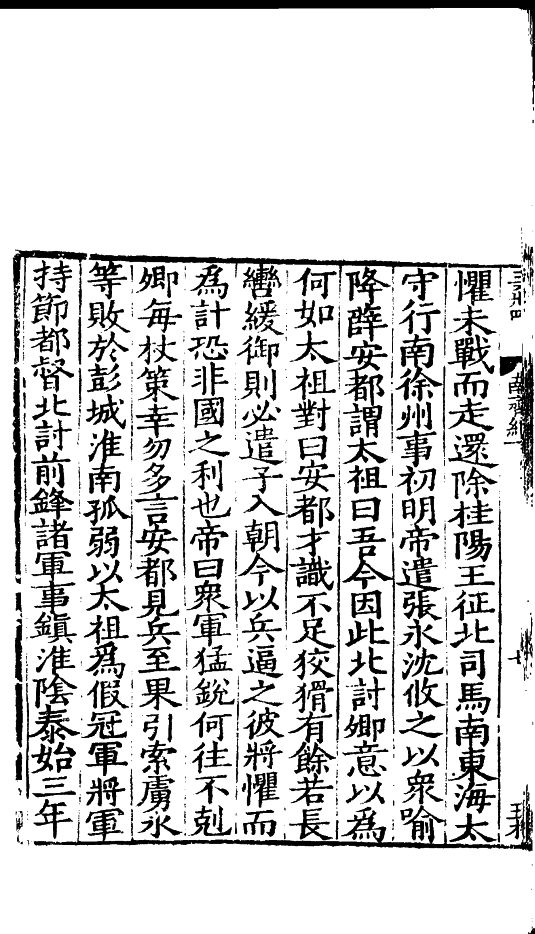 懼未戰而走還除桂陽王征北司馬南東海太
守行南徐州事初明帝遣張永沈攸之以衆喻
降薛安都謂太祖曰吾今因此北討卿意以爲
何如太祖對曰安都才識不足狡猾有餘若長
轡緩御則必遣子入朝今以兵逼之彼將懼而
爲計恐非國之利也帝曰衆軍猛銳何往不剋
卿每杖策幸勿多言安都見兵至果引索虜永
等敗於彭城淮南孤弱以太祖爲假冠軍將軍
持節都督北討前鋒諸軍事鎮淮陰泰始三年